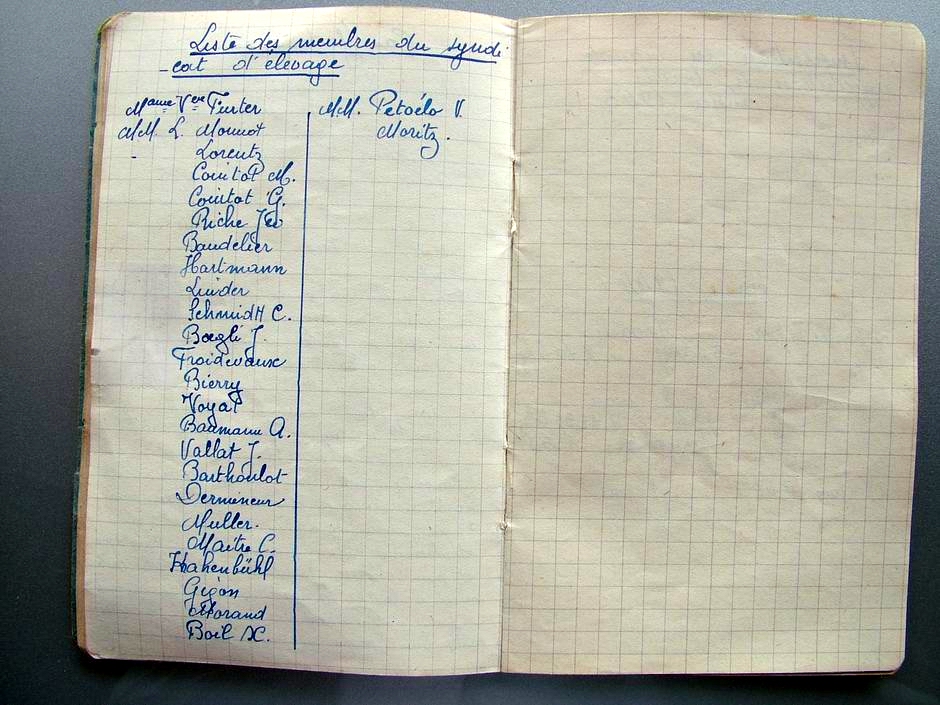 Liste des membres du syndi
-cat d'élevage
Mame Vve Furter
MM. L. Monnot
Lorentz
Comtat M.
Comtat G.
Riche
Baudelier
Hartmann
Linder
Schmidt C.
Boegli J.
Froidevaux
Bierry
Voyat
Baumann A.
Vallat J.
Barthoulot
Dermineur
Muller.
Maitre C.
Hakenbühl
Gigon
Morand
Boil X.
MM. Petoélo V.
Moritz.